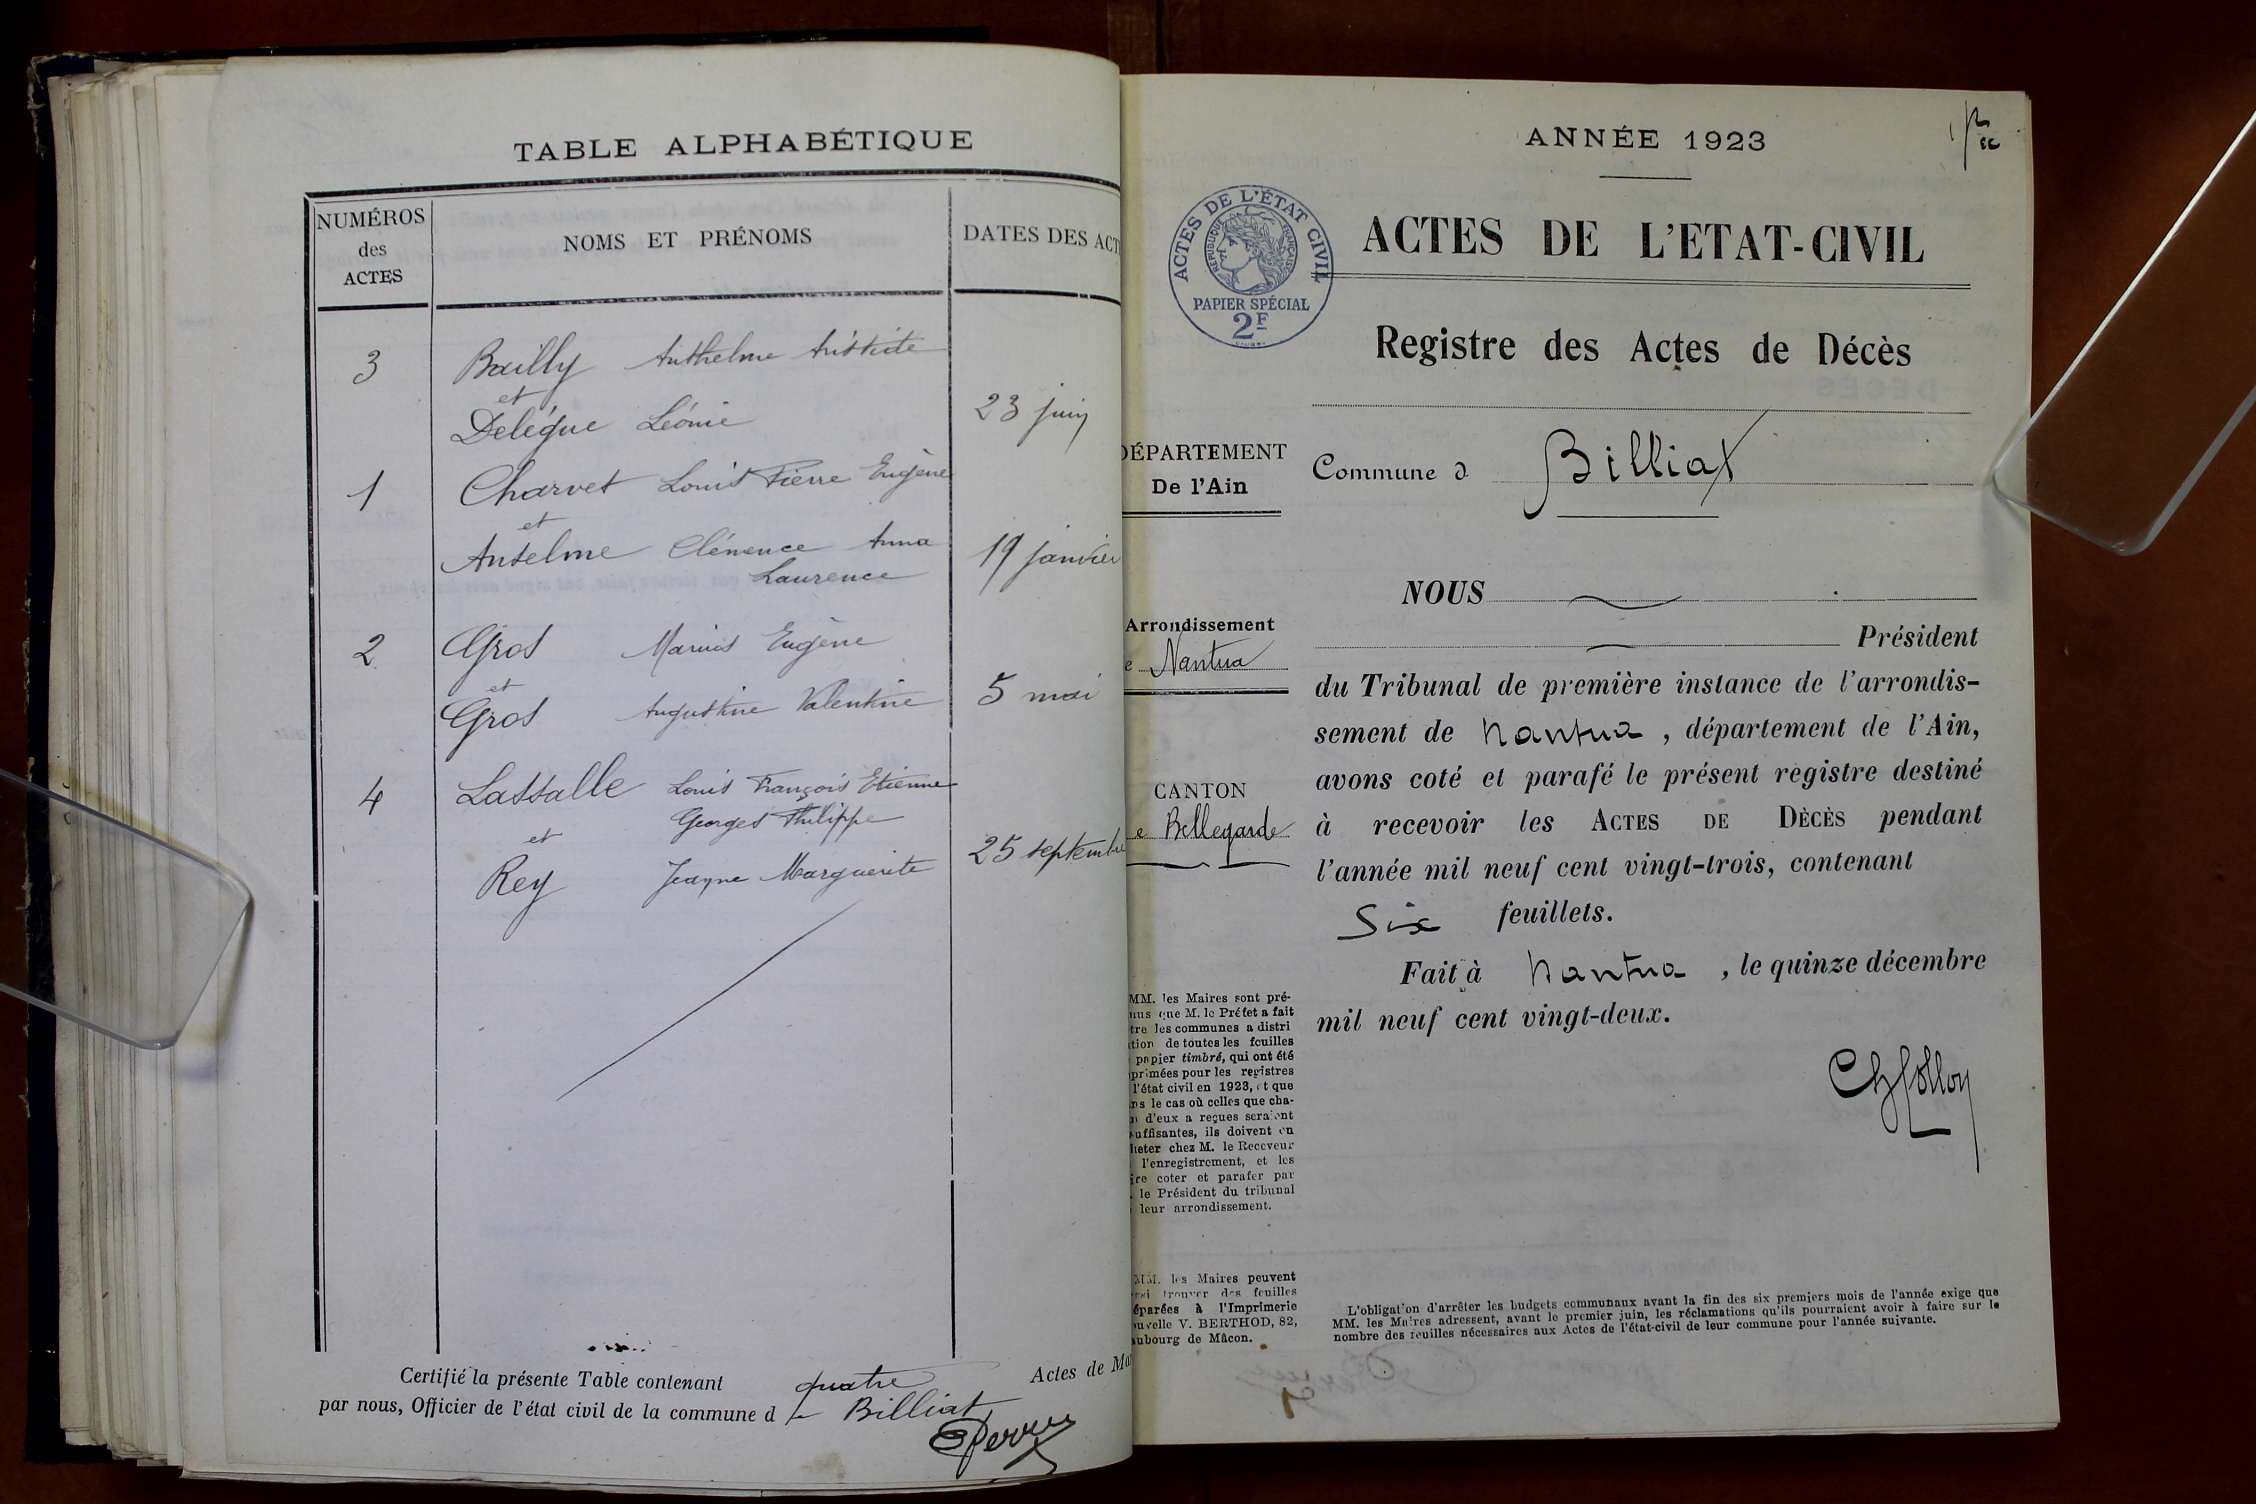 TABLE ALPHABÉTIQUE
NUMÉROS
des
ACTES
NOMS ET PRÉNOMS
DATES DES ACT
3
Bailly Anthelme Aristide
et
Delégue Léonie
23 juin
1
Charvet Louis Pierre Eugène
et
Anselme Clémence Anna
Laurence
19 janvier
2
Gros Marius Eugène
et
Gros Augustine Valentine
5 mai
4
Lassalle Louis François Etienne
Georges Philippe
et
Rey Jeanne Marguerite
25 septembre
Certifié la présente Table contenant quatre Actes de Ma
par nous, Officier de l'état civil de la commune d e Billiat
ANNÉE 1923
ACTES DE L'ÉTAT CIVIL
RÉPUBLIQUE FRANÇAISE
PAPIER SPÉCIAL
2F
ACTES DE L'ETAT-CIVIL
Registre des Actes de Décès
DÉPARTEMENT
De l'Ain
Commune d Billiat
Arrondissement
e Nantua
CANTON
e Bellegarde
NOUS
Président
du Tribunal de première instance de l'arrondis-
sement de Nantua, département de l'Ain,
avons coté et parafé le présent registre destiné
à recevoir les ACTES DE DÈCÈS pendant
l'année mil neuf cent vingt-trois, contenant
Six feuillets.
Fait à Nantua, le quinze décembre
mil neuf cent vingt-deux.
MM. les Maires sont pré-
nus que M. le Préfet a fait
tre les communes a distri
tion de toutes les feuilles
papier timbré, qui ont été
primées pour les registres
l'état civil en 1923, et que
ns le cas où celles que cha-
n d'eux a reçues seraient
uffisantes, ils doivent en
heter chez M. le Receveur
l'enregistrement, et les
ire coter et parafer par
le Président du tribunal
leur arrondissement.
MM. les Maires peuvent
ssi trouver des feuilles
éparées à l'Imprimerie
uvelle V. BERTHOD, 82,
ubourg de Mâcon.
L'obligation d'arrêter les budgets communaux avant la fin des six premiers mois de l'année exige que
MM. les Maires adressent, avant le premier juin, les réclamations qu'ils pourraient avoir à faire sur le
nombre des feuilles nécessaires aux Actes de l'état-civil de leur commune pour l'année suivante.